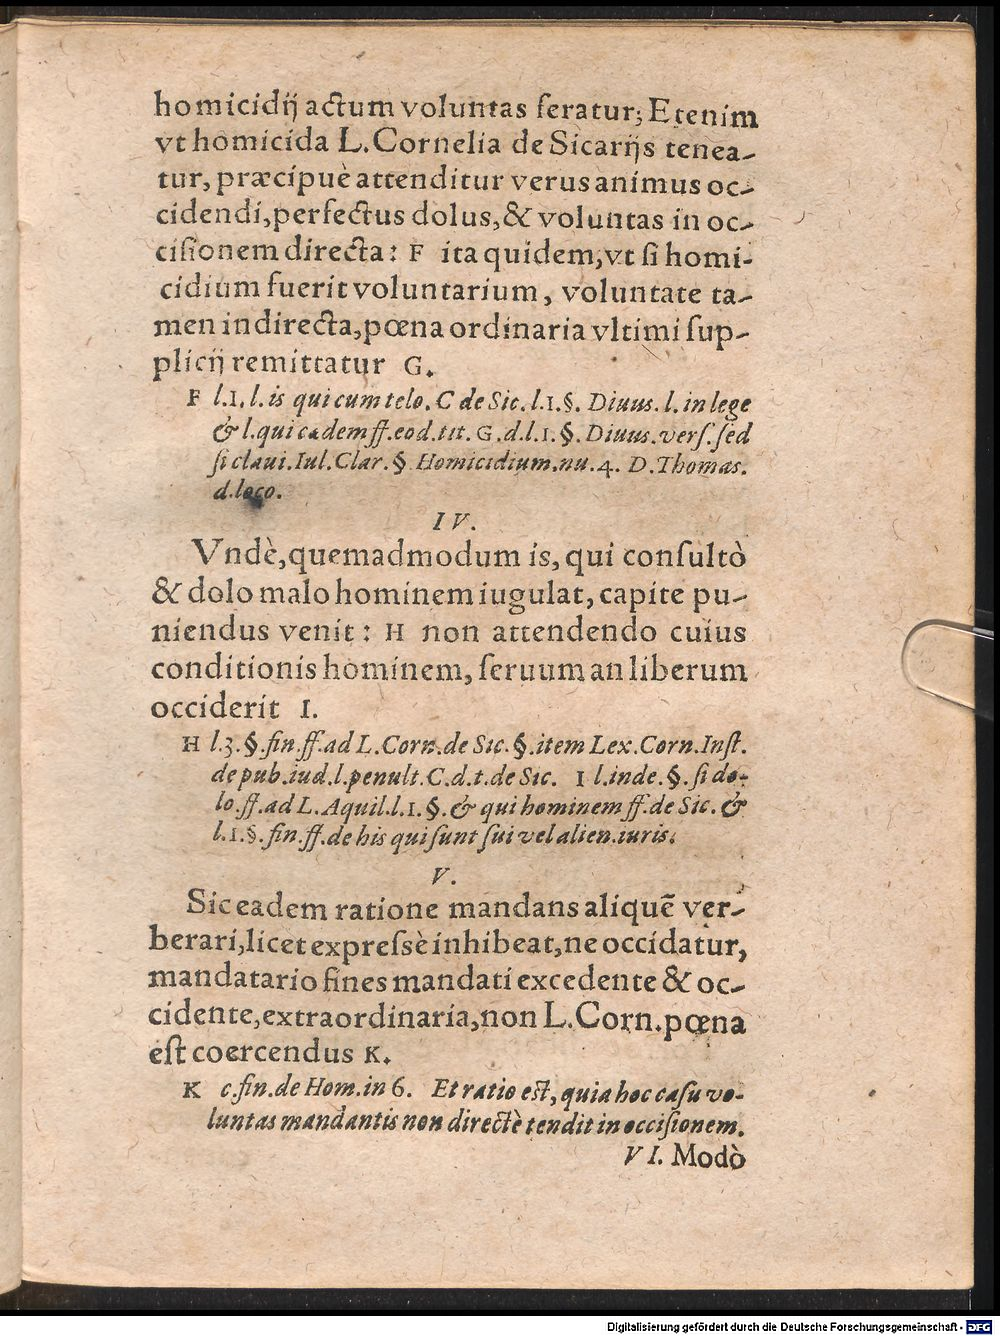 homicidij actum voluntas feratur; Etenim
vt homicida L. Cornelia de Sicarijs tenea-
tur, præcipuè attenditur verus animus oc-
cidendi, perfectus dolus, & voluntas in oc-
cisionem directa: F ita quidem, vt si homi-
cidium fuerit voluntarium, voluntate ta-
men indirecta, pœna ordinaria vltimi sup-
plicij remittatur G.
F l.1. l. is qui cum telo. C de Sic. l.1.§. Diuus. l. in lege
& l. qui cædem ff. eod. tit. G. d. l.1.§. Diuus. vers. sed
si claui. Iul. Clar. § Homicidium. nu. 4. D. Thomas.
d. loco.
IV.
Vndè, quemadmodum is, qui consultò
& dolo malo hominem iugulat, capite pu-
niendus venit: H non attendendo cuius
conditionis hominem, seruum an liberum
occiderit I.
H l.3.§. fin. ff. ad L. Corn. de Sic. §. item Lex. Corn. Inst.
de pub. iud. l. penult. C. d. t. de Sic. I l. inde. §. si do-
lo. ff. ad L. Aquil. l.1.§. & qui hominem ff. de Sic. &
l.1.§. fin. ff. de his qui sunt sui vel alien. iuris.
V.
Sic eadem ratione mandans aliquẽ ver-
berari, licet expressè inhibeat, ne occidatur,
mandatario fines mandati excedente & oc-
cidente, extraordinaria, non L. Corn. pœna
est coercendus K.
K c. fin. de Hom. in 6. Et ratio est, quia hoc casu vo-
luntas mandantis non directè tendit in occisionem.
VI. Modò
Digitalisierung gefördert durch die Deutsche Forschungsgemeinschaft - DFG